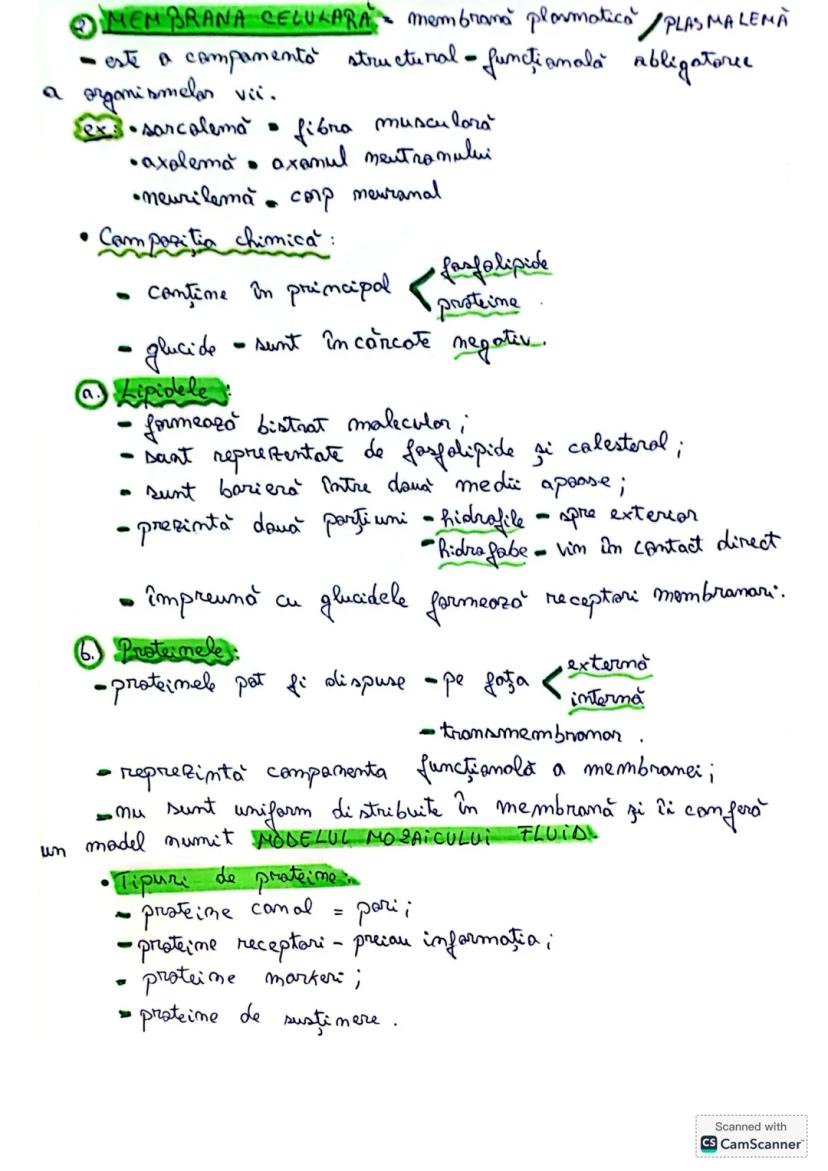 ② MEMBRANA CELULARĂ = membrană plasmatică / PLASMALEMĂ
- este o componentă structural - funcțională obligatorie
a organismelor vii.
ex: • sarcolemă - fibra musculară
• axolemă - axonul neutronului
• neurilemă - corp neuronal
• Compoziția chimică:
- conține în principal < fosfolipide
proteine.
- glucide - sunt încărcate negativ.
a. Lipidele:
- formează bistrat molecular;
- sunt reprezentate de fosfolipide și colesterol;
- sunt barieră între două medii apoase;
- prezintă două porțiuni - hidrofile - spre exterior
- hidrofobe - vin în contact direct
- împreună cu glucidele formează receptori membranari.
b. Proteinele:
- proteinele pot fi dispuse - pe fața < externă
internă
- transmembranar.
- reprezintă componenta funcțională a membranei;
- nu sunt uniform distribuite în membrană și îi conferă
un model numit MODELUL MOZAICULUI FLUID.
• Tipuri de proteine:
- proteine canal = pori;
- proteine receptori - preiau informația;
- proteine markeri;
- proteine de susținere.
Scanned with
CS CamScanner